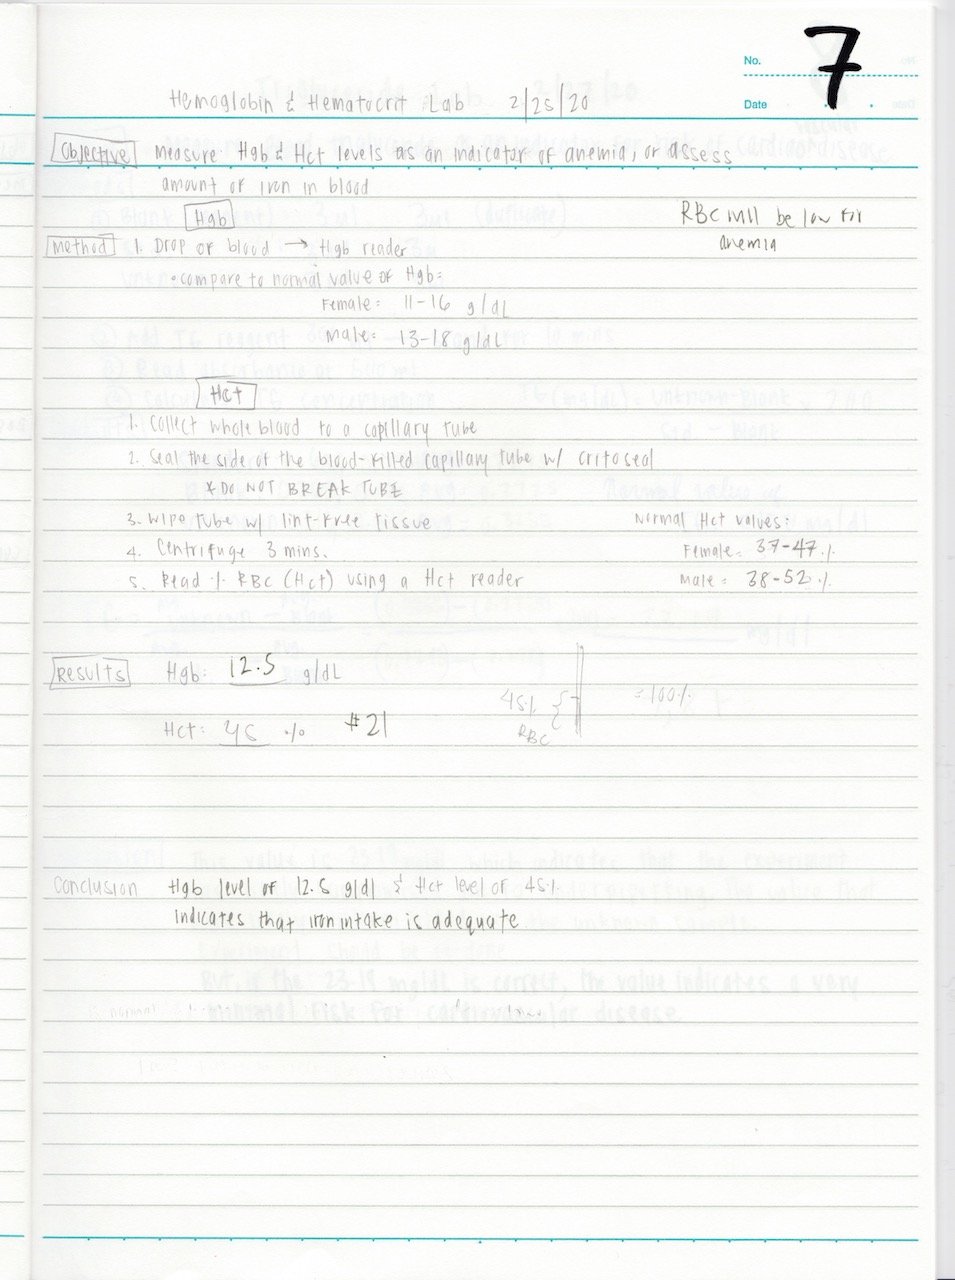 No. 7
Date
Hemoglobin & Hematocrit Lab 2/25/20
Objective Measure Hgb & Hct levels as an indicator of anemia, or assess
amount of iron in blood
Hgb
RBC will be low for
anemia
Method 1. Drop of blood → Hgb reader
• compare to normal value of Hgb:
Female = 11-16 g/dL
Male = 13-18 g/dL
Hct
1. Collect whole blood to a capillary tube
2. Seal the side of the blood-filled capillary tube w/ critoseal
* DO NOT BREAK TUBE
3. Wipe tube w/ lint-free tissue
4. Centrifuge 3 mins.
5. Read % RBC (Hct) using a Hct reader
Normal Hct values:
Female = 37-47 %
Male = 38-52 %
Results Hgb: 12.5 g/dL
Hct: 45 % #21
45% RBC
= 100%
Conclusion Hgb level of 12.5 g/dl & Hct level of 45%
indicates that iron intake is adequate